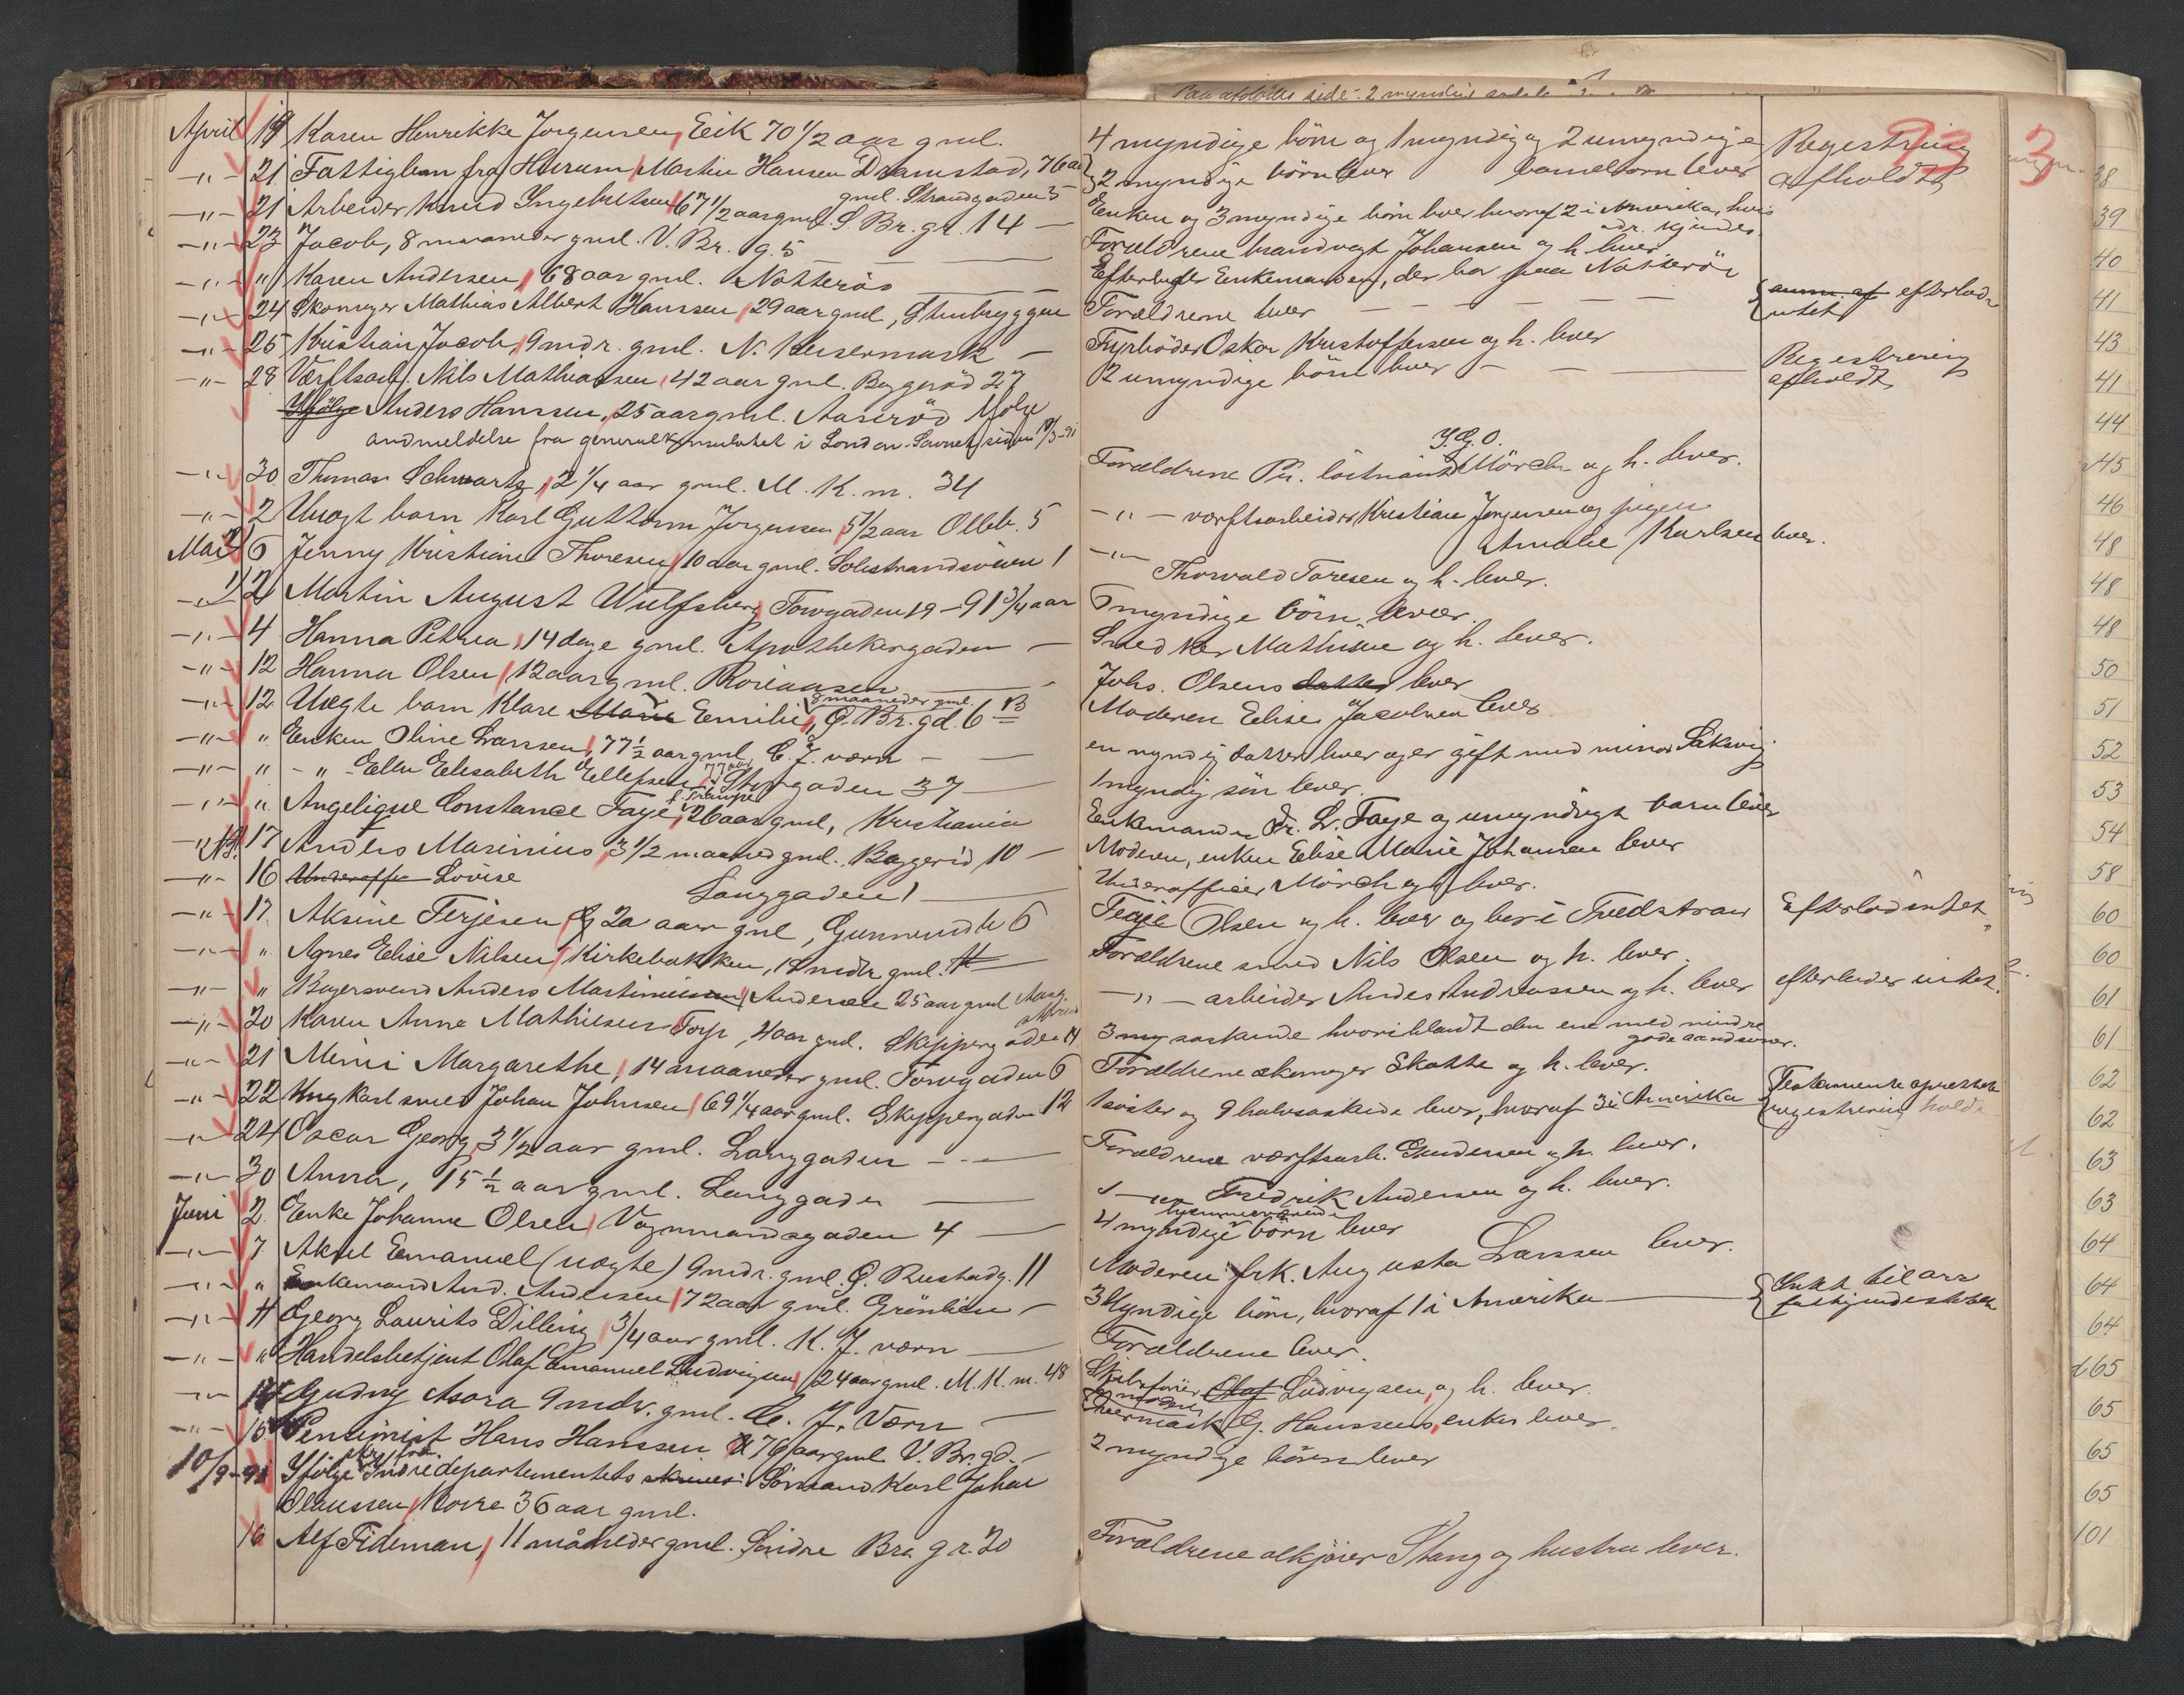 April 19 Karen Henrikke Jørgensen, Eeik 70 1/2 aar gml.
-"- 21 Fattiglem fra Hurum, Martin Hansen Dramstad, 76 aar
gml. Strandgaden 5
-"- 21 Arbeider Knud Ingebretsen 67 1/2 aar gml. S. Br. gd. 14 -
-"- 23 Jacob, 8 maaneder gml. V. Br. g. 5
-"- " Karen Andersen, 68 aar gml. Nötterö
-"- 24 Skomager Mathias Albert Hanssen, 29 aar gml, Stenbryggen
-"- 25 Kristian Jacob, 9 mdr. gml. N. Keisermark -
-"- 28 Værftsarb. Nils Mathiassen, 42 aar gml. Baggeröd 27
Ifølge Anders Hanssen, 25 aar gml. Aaseröd Ifølge
andmeldelse fra generalkonsulatet i London. Savnet siden 18/3-91
-"- 30 Thomas Schwartz, 2 1/4 aar gml. M. K. m. 34
-"- 2 Uægt barn Karl Guttorm Jørgensen, 5 1/2 aar Olleb. 5
Mai 6 Jenny Kristiane Thoresen, 10 aar gml. Solistrandsveien 1
-"- 2 Martin August Wulfsberg, Torvgaden 19 - 91 3/4 aar
-"- 4 Hanna Petrea, 14 dage gml. Apothekergaden -
-"- 12 Hanna Olsen, 12 aar gml. Roreaasen
8 maaneder gml.
-"- 12 Uægte barn Klare Marie Emilie, Ø. Br. gd. 6 B
-"- " Enken Oline Larssen, 77 1/2 aar gml C. J. værn -
77 aar
-"- " -"- Ellen Elisabeth Ellefsen, Storgaden 37
f. Trampe
-"- " Angelique Constance Faye, 26 aar gml, Kristiania
-"- N3. 17 Anders Marinius, 3 1/2 maaned gml. Baggeröd 10 -
-"- 16 Underoffic Lovise Langgaden 1
-"- 17. Aksine Terjesen, 20 aar gml, Gunnerudb 6
-"- " Agnes Elise Nilsen, Kirkebakken, 18 mdr gml.
-"- " Bagersvend Anders Martinussen, Andersen 25 aar gml Aasg.
-"- 20 Karen Anne Mathiesen Torp, 4 aar gml. Skippergaden 14
-"- 21 Mimi Margarethe, 14 maaneder gml. Torvgaden 6
-"- 22 Ungkarl smed Johan Johnsen, 69 1/4 aar gml. Skippergaden 12
-"- 24 Oscar Georg, 3 1/2 aar gml. Langgaden
-"- 30 Anna, 15 1/2 aar gml. Langgaden
Juni 2 Enke Johanne Olsen, Vognmandsgaden 4 -
-"- 7 Aksel Emanuel (uægte) 9 mdr. gml. Ø. Rustadg. 11
-"- " Enkemand And. Andersen, 72 aar gml. Grönlien -
-"- 11 Georg Laurits Dilling, 3/4 aar gml. K. J. værn
-"- " Handelsbetjent Olaf Emanuel Ludvigsen, 24 aar gml. M. K. m. 48
-"- 14 Gudny Asora 9 mdr. gml. C. J. Værn -
-"- 15 Pensionist Hans Hanssen 76 aar gml V. Br. gd. -
skr. fra
10/9-91 Ifølge Indredepartementets skrivelse Sømand Karl Johan
Claussen, Korre 36 aar gml.
16 Alf Fideman, 11 måneder gml. Søndre Bra. gr. 20
4 myndige börn og 1 myndig og 2 umyndige
2 myndige börn lever barnebørn lever
Enken og 3 myndige börn lever hvoraf 2 i Amerika, hvis
adr. kjendes
Forældrene brandvagt Johansen og h. lever
Efterlader Enkemanden, der bor paa Nötterö
Forældrene lever
Fyrböder Oskar Kristoffersen og h. lever
2 umyndige börn lever
Y. G. O.
Forældrene Pr. löitnant Mörch og h. lever.
-"- værftsarbeider Kristian Jørgensen og pigen
Amalie Karlsen lever.
-"- Thorvald Toresen og h. lever.
6 myndige börn lever.
Smed Mathisen og h. lever.
Johs. Olsens datter lever
Moderen Elise Jacobsen lever
en myndig datter lever og er gift med minör Sæksvig
1 myndig sön lever.
Enkemanden Dr. L. Faye og umyndigt barn lever
Moderen, enken Elise Marie Johansen lever
Underofficier Mörch og h. lever.
Terje Olsen og h. lever og bor i Tvedstrand
Forældrene smed Nils Olsen og h. lever.
-"- arbeider Anders Andreassen og h. lever
3 my söskende hvoriblandt den ene med mindre
gode aandsevner.
Forældrene skomager Skatte og h. lever.
1 söster og 9 halvsöskende lever, hvoraf 3 i Amerika
Forældrene værftsarb. Gundersen og h. lever.
-"- Fredrik Andersen og h. lever.
4 myndige börn lever
Moderen frk. Augusta Larssen lever.
3 Myndige börn, hvoraf 1 i Amerika
Forældrene lever.
Skibsförer Olaf Ludvigsen, og h. lever.
G. Hanssens, enke lever.
2 myndige börn lever
Forældrene ölkjörer Stang og hustru lever.
Registrering
afholdt
anm. af efterlod
intet
Registrering
afholdt
Efterlod intet
efterlader intet.
Testamente oprettet
registrering holdt
38
39
40
41
43
41
44
45
46
48
48
48
50
51
52
53
54
58
60
60
61
61
62
62
63
63
64
64
64
65
65
65
65
101